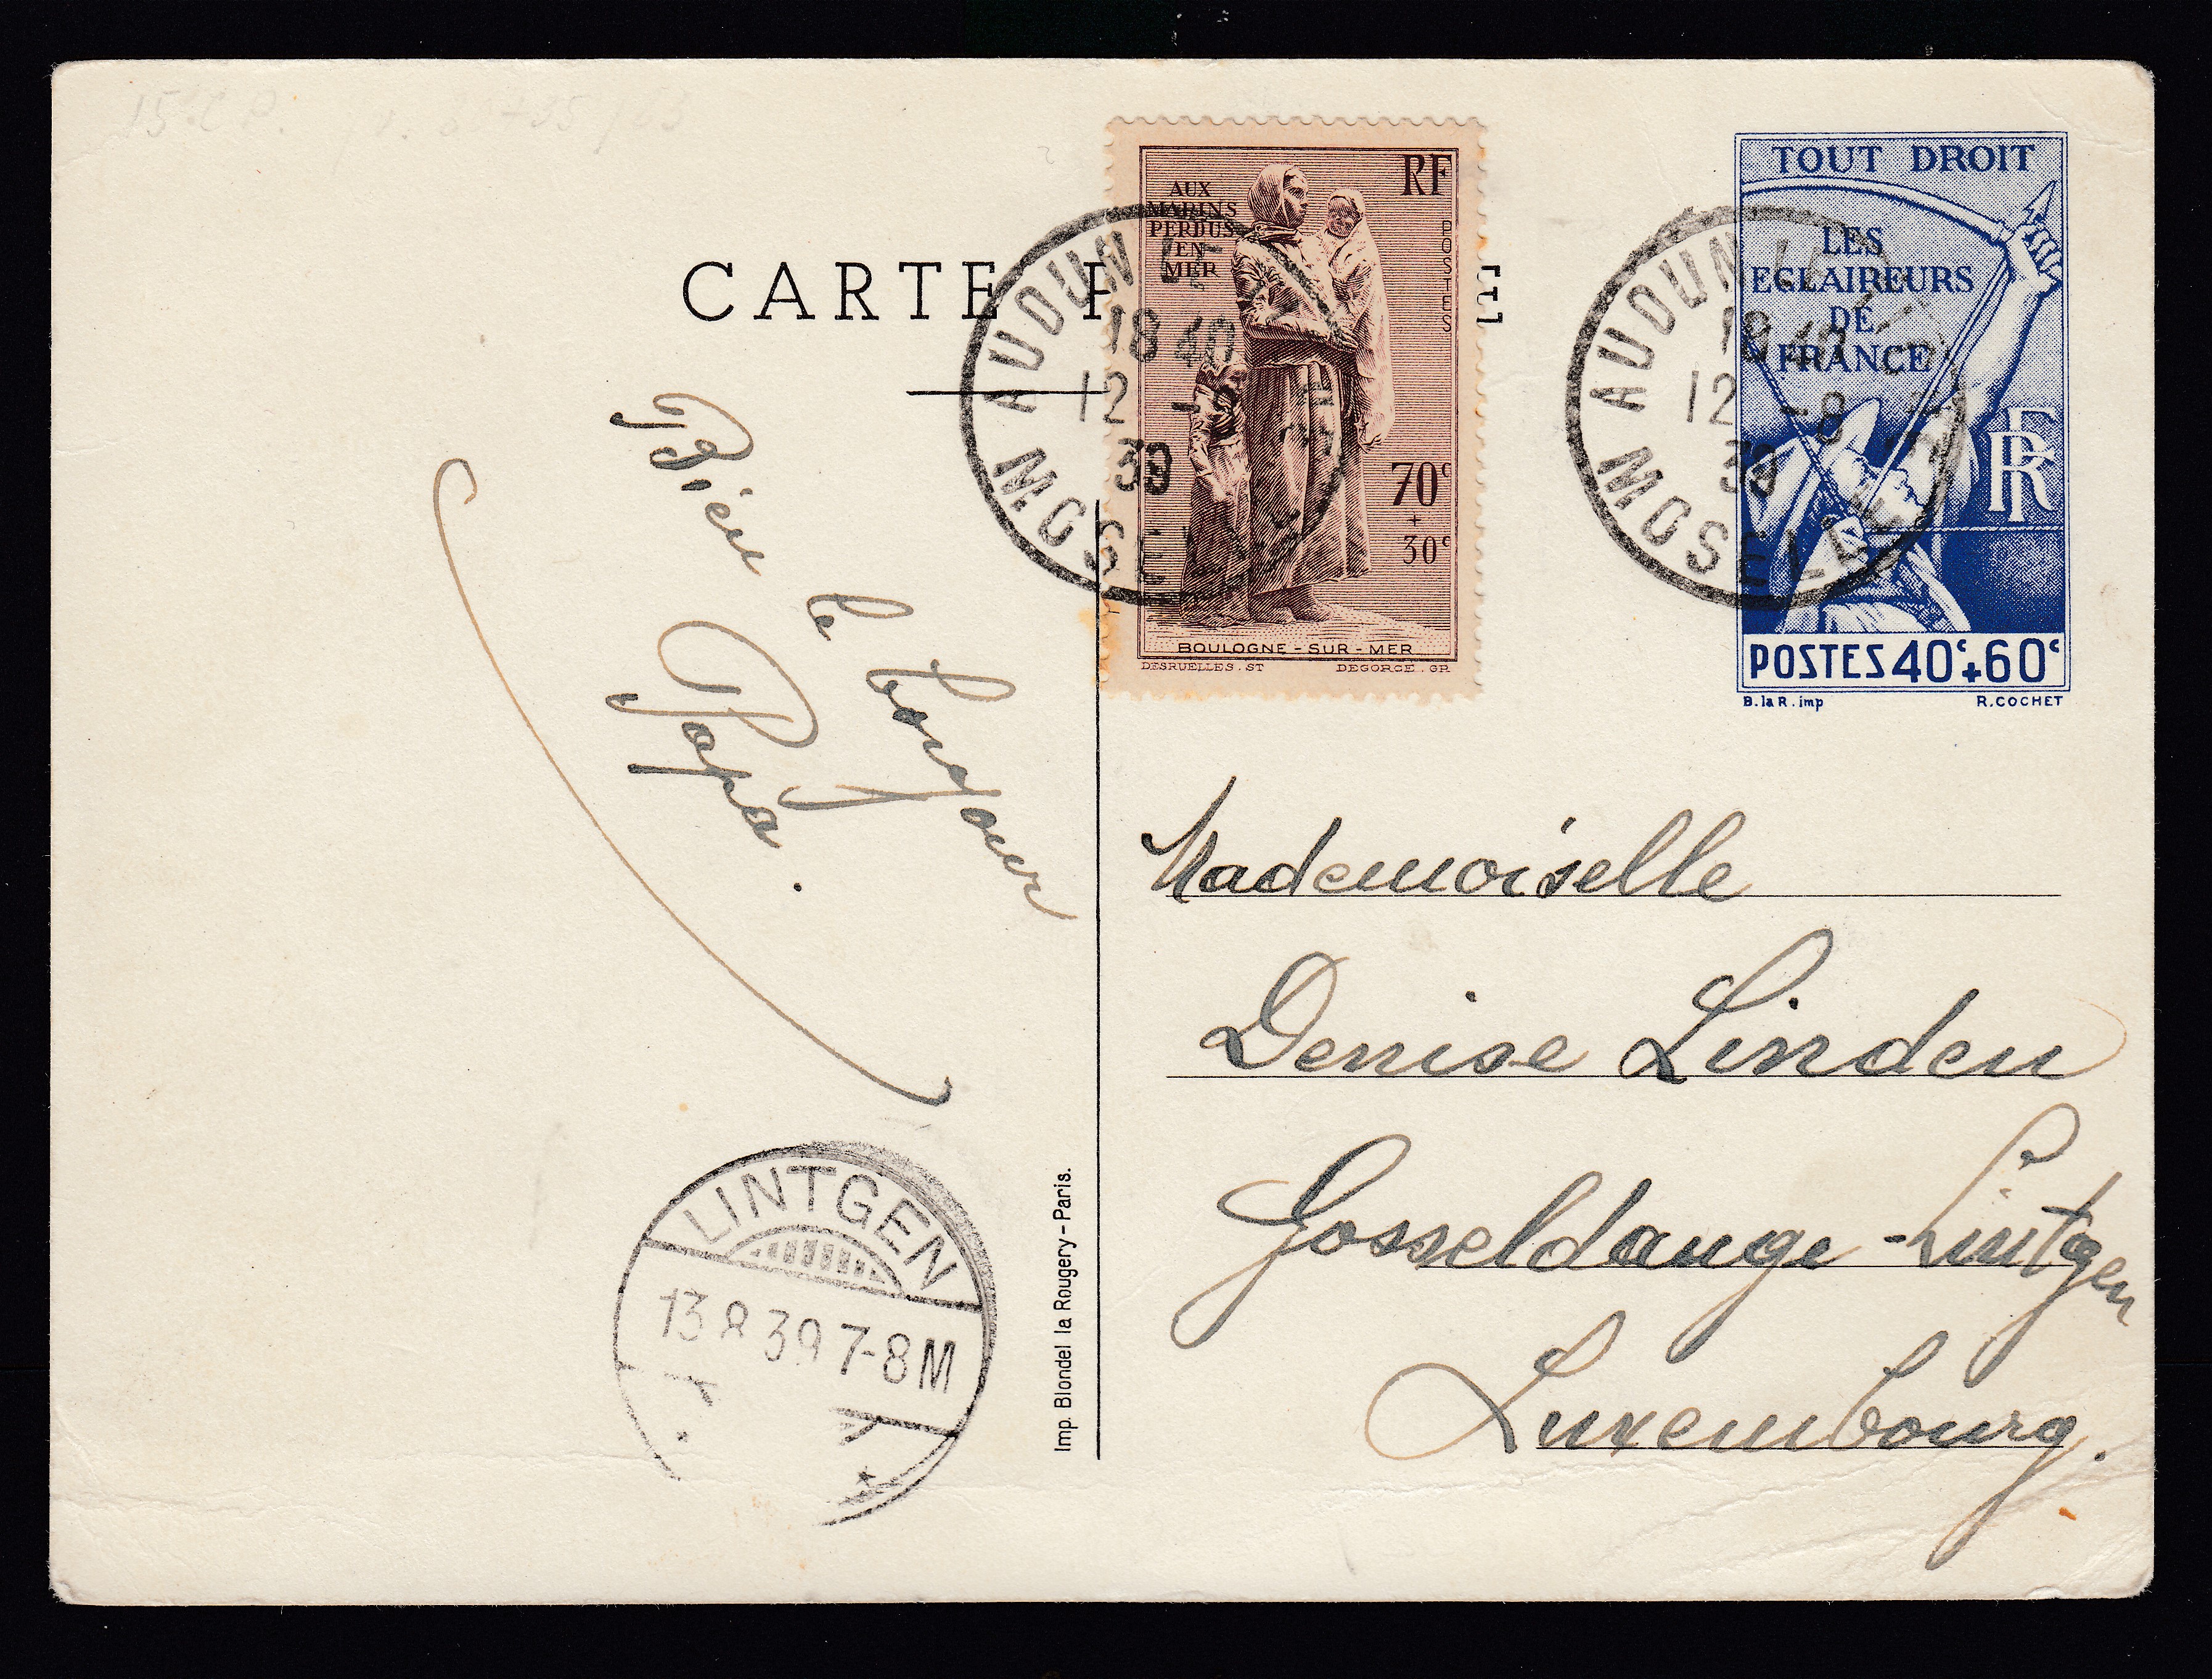 CARTE P
AUX
MARINS
PERDUS
EN
MER
RF
POSTES
70c
+
30c
BOULOGNE-SUR-MER
DESRUELLES.ST DEGORCE.GR
TOUT DROIT
LES
ECLAIREURS
DE
FRANCE
RF
POSTES 40c+60c
B.laR.imp R.COCHET
AUDUN LE
18 40
12 -8
39
MOSELLE
AUDUN LE
18 40
12 -8
39
MOSELLE
Bien le bonjour
Papa.
Mademoiselle
Denise Linden
Gosseldange-Lintgen
Luxembourg.
LINTGEN
13 8 39 7-8M
Imp. Blondel la Rougery-Paris.